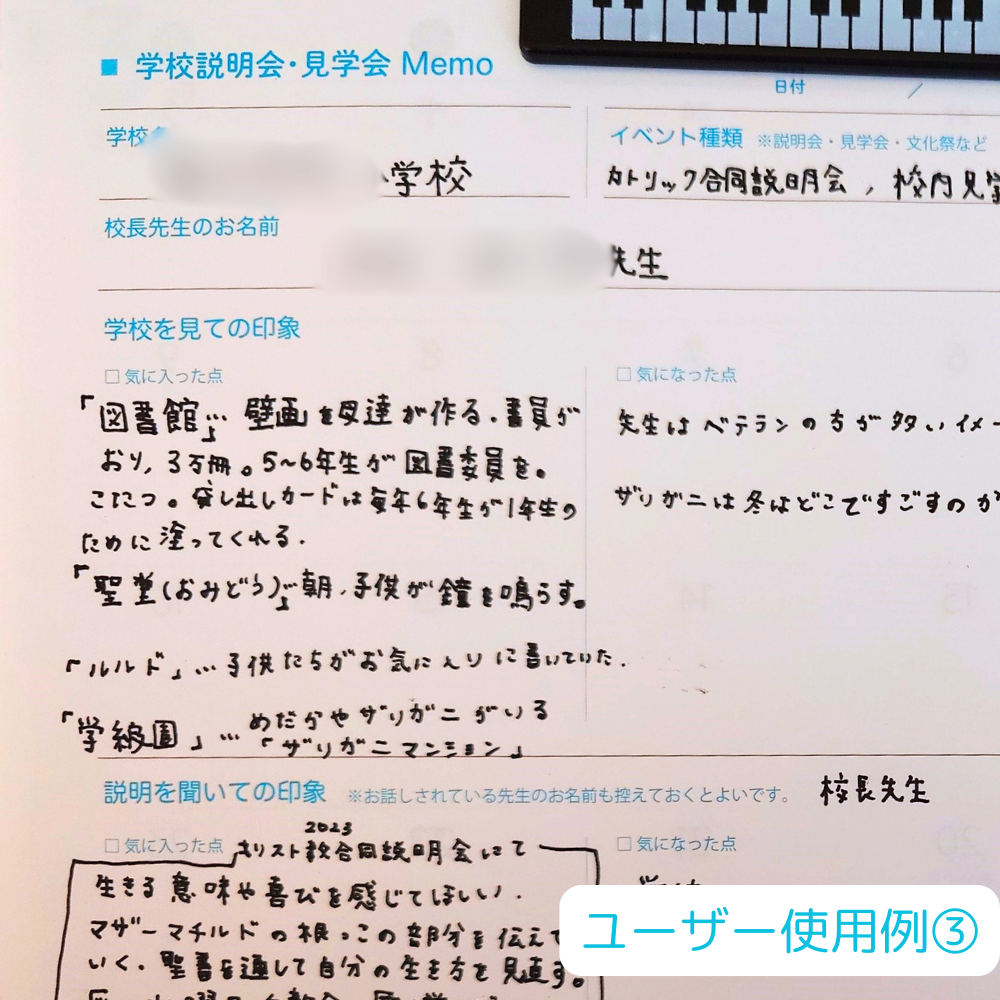 ■ 学校説明会・見学会 Memo
日付 ／
学校
小学校
イベント種類 ※説明会・見学会・文化祭など
カトリック合同説明会, 校内見学
校長先生のお名前
先生
学校を見ての印象
□ 気に入った点
「図書館」… 壁画を母達が作る. 書員が
おり, 3万冊。5〜6年生が図書委員を。
こたつ。貸し出しカードは毎年6年生が1年生の
ために塗ってくれる.
「聖堂(おみどう)」… 朝, 子供が鐘を鳴らす。
「ルルド」… 子供たちがお気に入りに書いていた.
「学級園」… めだかやザリガニがいる
「ザリガニマンション」
□ 気になった点
先生はベテランの方が多いイメー
ザリガニは冬はどこですごすのか
説明を聞いての印象 ※お話しされている先生のお名前も控えておくとよいです。 校長先生
□ 気に入った点
2023
キリスト教合同説明会にて
生きる意味や喜びを感じてほしい.
マザーマチルドの根っこの部分を伝えて
いく. 聖書を通して自分の生き方を見直す。
□ 気になった点
ユーザー使用例③